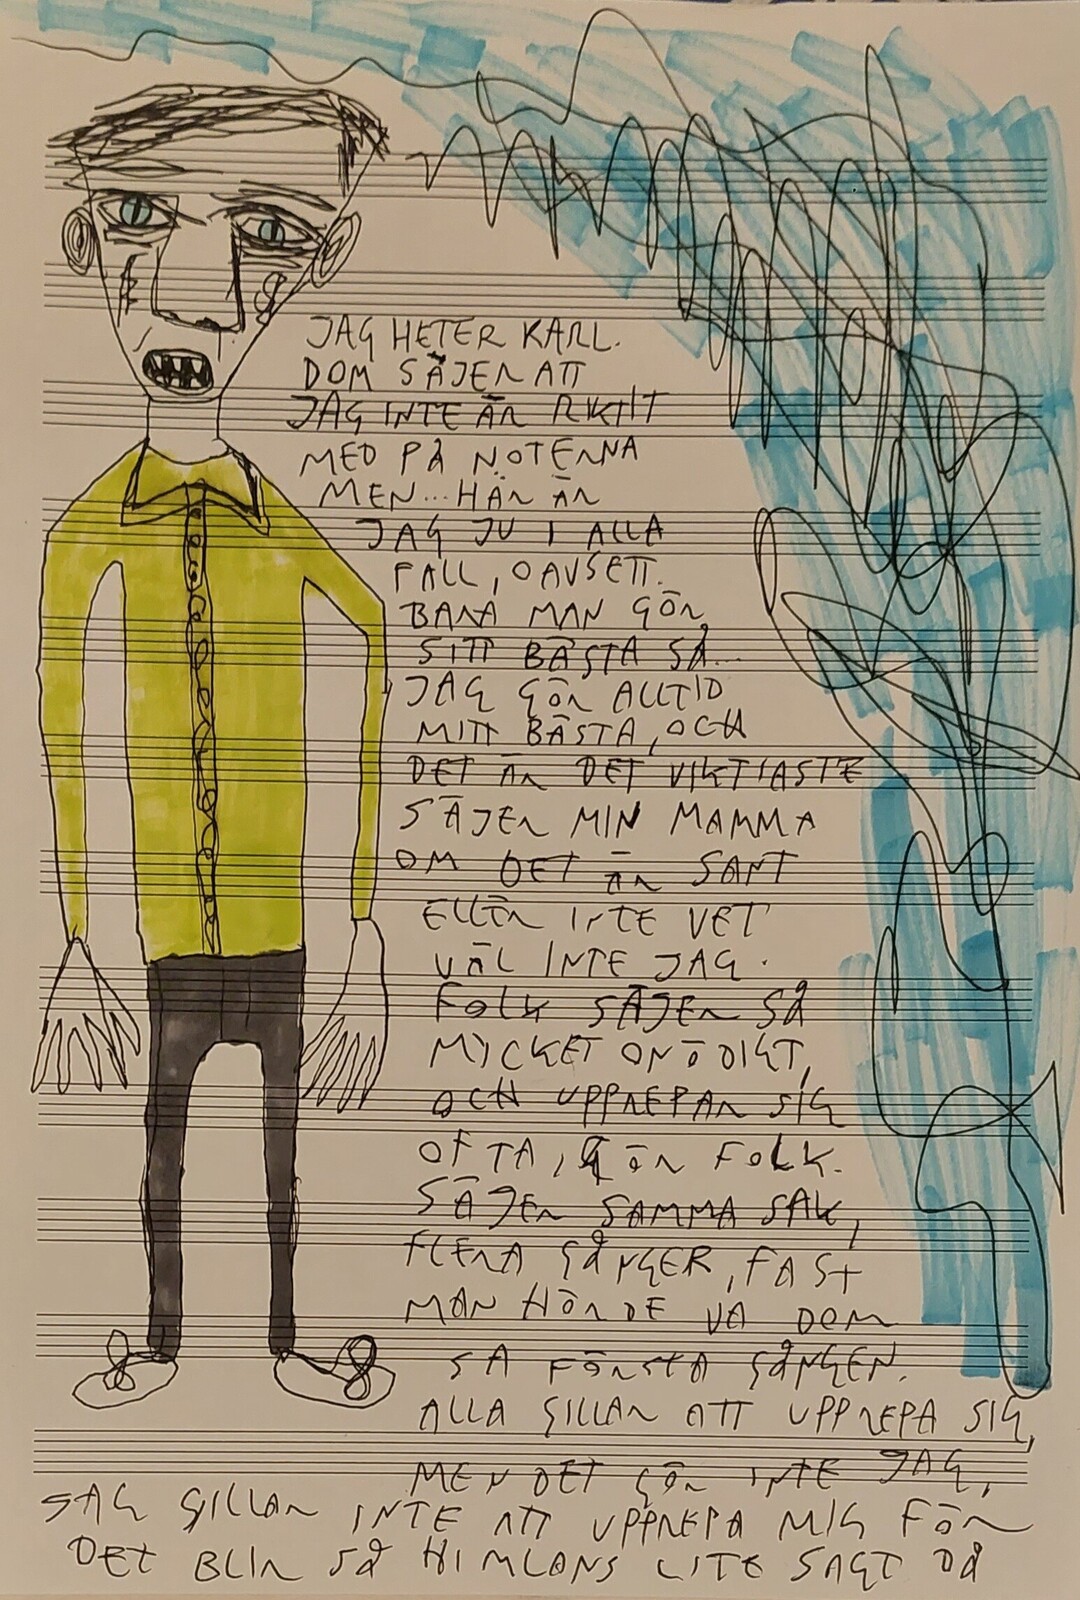 JAG HETER KARL.
DOM SÄJER ATT
JAG INTE ÄR RIKTIT
MED PÅ NOTERNA
MEN... HÄR ÄR
JAG JU I ALLA
FALL, OAVSETT.
BARA MAN GÖR
SITT BÄSTA SÅ...
JAG GÖR ALLTID
MITT BÄSTA, OCH
DET ÄR DET VIKTIASTE
SÄJER MIN MAMMA
OM DET ÄR SANT
ELLER INTE VET
VÄL INTE JAG.
FOLK SÄJER SÅ
MYCKET ONÖDIGT,
OCH UPPREPAR SIG
OFTA, GÖR FOLK.
SÄJER SAMMA SAK,
FLERA GÅNGER, FAST
MAN HÖRDE VA DOM
SA FÖRSTA GÅNGEN.
ALLA GILLAR ATT UPPREPA SIG,
MEN DET GÖR INTE JAG,
JAG GILLAR INTE ATT UPPREPA MIG FÖR
DET BLIR SÅ HIMLANS LITE SAGT DÅ